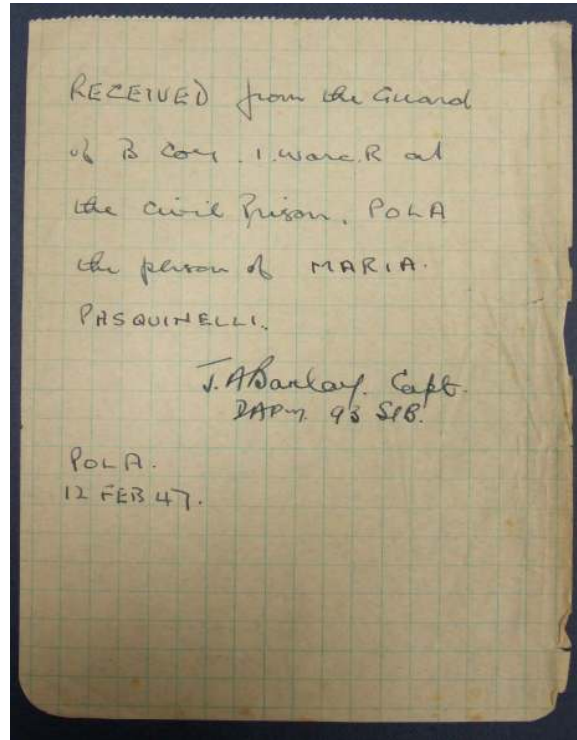 RECEIVED from the Guard
of B Coy. 1. Warc. R at
the Civil Prison, POLA
the person of MARIA.
PASQUINELLI.
J. A Barclay. Capt.
DAPM. 93 SIB.
POLA.
12 FEB 47.